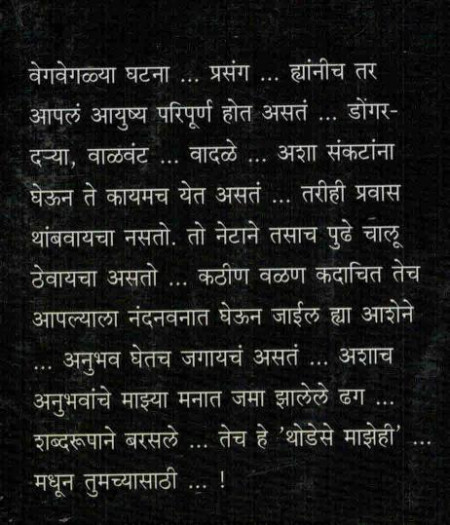 वेगवेगळ्या घटना ... प्रसंग ... ह्यांनीच तर
आपलं आयुष्य परिपूर्ण होत असतं ... डोंगर-
दऱ्या, वाळवंट ... वादळे ... अशा संकटांना
घेऊन ते कायमच येत असतं ... तरीही प्रवास
थांबवायचा नसतो. तो नेटाने तसाच पुढे चालू
ठेवायचा असतो ... कठीण वळण कदाचित तेच
आपल्याला नंदनवनात घेऊन जाईल ह्या आशेने
... अनुभव घेतच जगायचं असतं ... अशाच
अनुभवांचे माझ्या मनात जमा झालेले ढग ...
शब्दरूपाने बरसले ... तेच हे 'थोडेसे माझेही' ...
मधून तुमच्यासाठी ... !